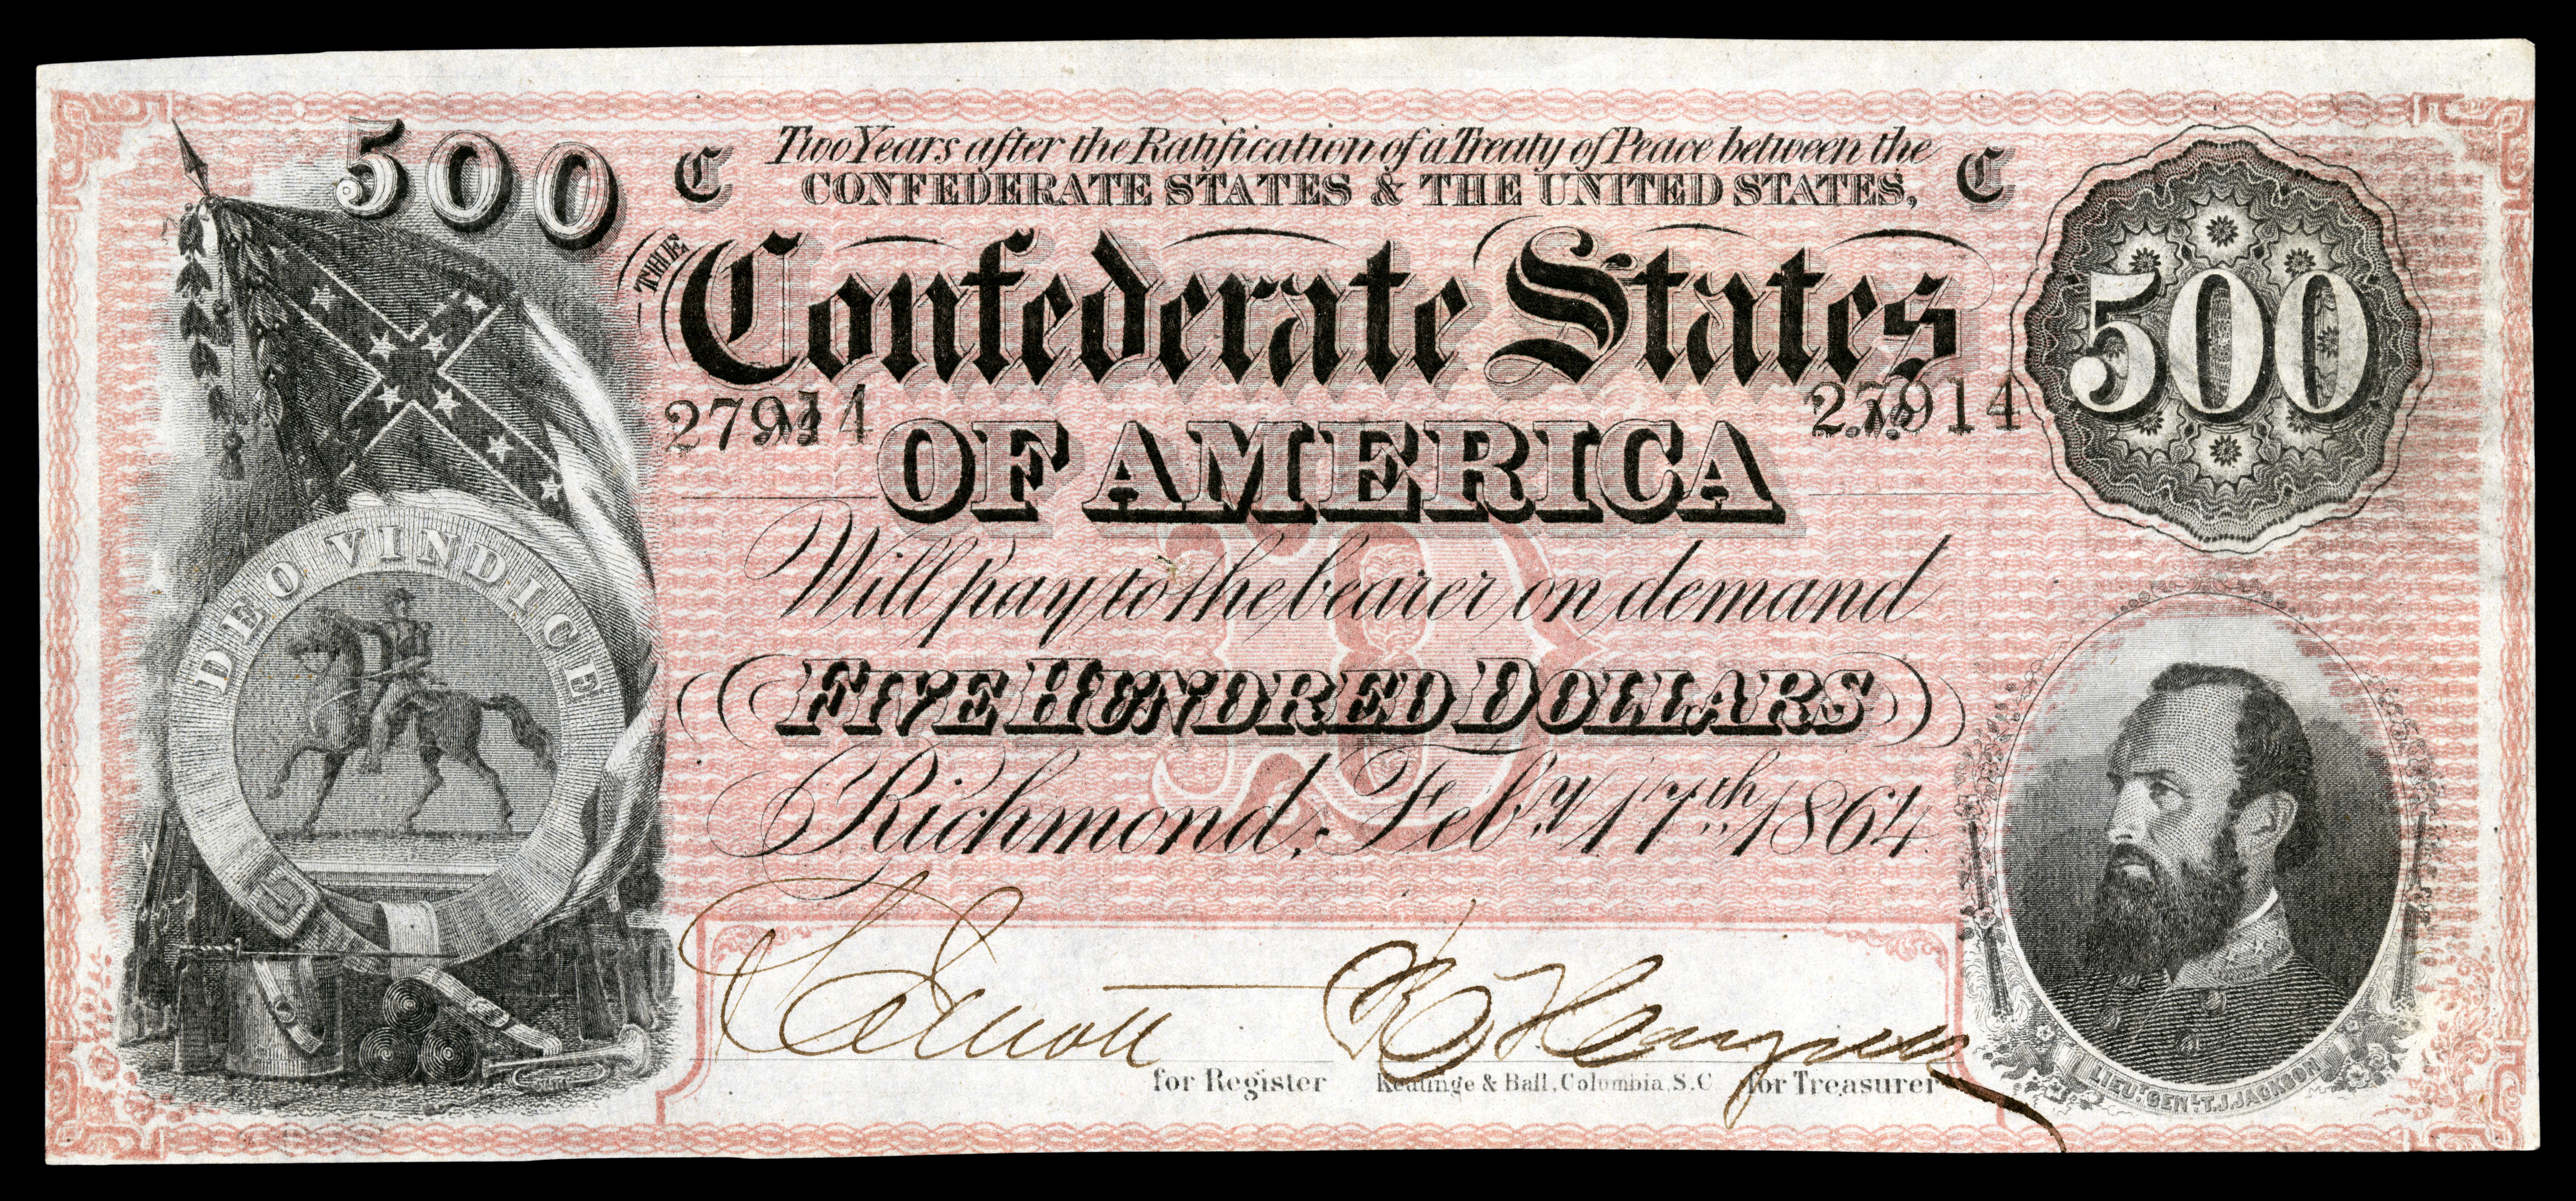 500
C Two Years after the Ratification of a Treaty of Peace between the C
CONFEDERATE STATES & THE UNITED STATES,
THE Confederate States
500
27914 No
No 27914
OF AMERICA
Will pay to the bearer on demand
FIVE HUNDRED DOLLARS
Richmond, Feby. 17th. 1864.
DEO VINDICE
for Register
Keatinge & Ball, Columbia, S.C.
for Treasurer
D
LIEUT. GENL. T.J. JACKSON